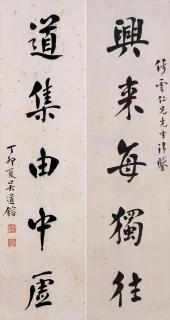 倚雲仁兄先生清鑒
興來每獨往
道集由中虛
丁卯夏吳道鎔